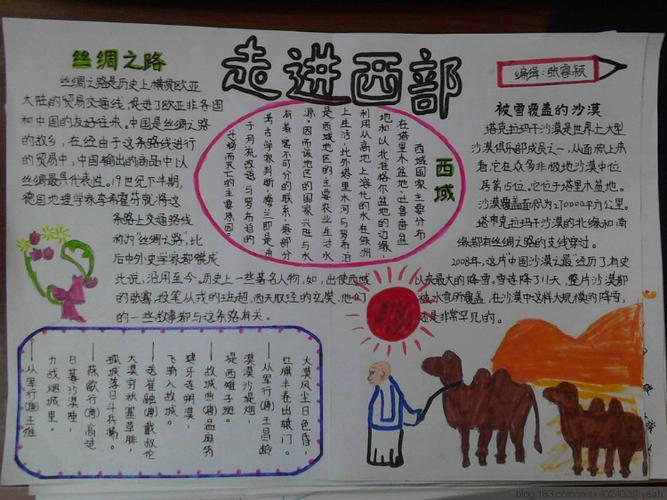 走进西部
编辑:张睿颖
丝绸之路
丝绸之路是历史上横贯欧亚
大陆的贸易交通线,促进了欧亚非各国
和中国的友好往来。中国是丝绸之路
的故乡,在经由于这条路线进行
的贸易中,中国输出的商品中以
丝绸最具代表性。19世纪下半期,
德国地理学家李希霍芬就将这
条陆上交通路线
称为“丝绸之路”,此
后中外史学家都赞成
此说,沿用至今。历史上一些著名人物,如,出使西域
的张骞,投笔从戎的班超,西天取经的玄奘,他们
的一些故事都与这条路有关。
西域
西域国家主要分布
在塔里木盆地、吐鲁番盆
地和以北准格尔盆地的边缘,
利用从高地上溶化的水在绿洲
上生活,此外塔里木河与罗布泊
是西域地区的主要农业生活水
源,因而该地区的国家兴旺与水
有着密不可分的联系,据部分
考古学家判断,楼兰即是由
于河流改道与罗布泊的
迁移而灭亡的主要原因。
被雪覆盖的沙漠
塔克拉玛干沙漠是世界上大型
沙漠俱乐部成员之一,从面积上来
看,它在众多非极地沙漠中位
居第15位,它位于塔里木盆地。
沙漠覆盖面积为270000平方公里。
塔克拉玛干沙漠的北缘和南
缘都有丝绸之路的支线穿过。
2008年,这片中国沙漠最经历了有史
以来最大的降雪,雪连降了11天,整片沙漠都
被冰雪所覆盖,在沙漠中这样大规模的降雪,
还是非常罕见的。
大漠风尘日色昏,
红旗半卷出辕门。
——从军行(唐)王昌龄
漠漠沙堤烟,
堤西雉子斑。
——故城曲(唐)温庭筠
建牙连朔漠,
飞骑入故城。
——送崔融(唐)戴叔伦
大漠穷秋塞草腓,
孤城落日斗兵稀。
——燕歌行(唐)高适
日暮沙漠陲,
力战烟尘里。
——从军行(唐)王维